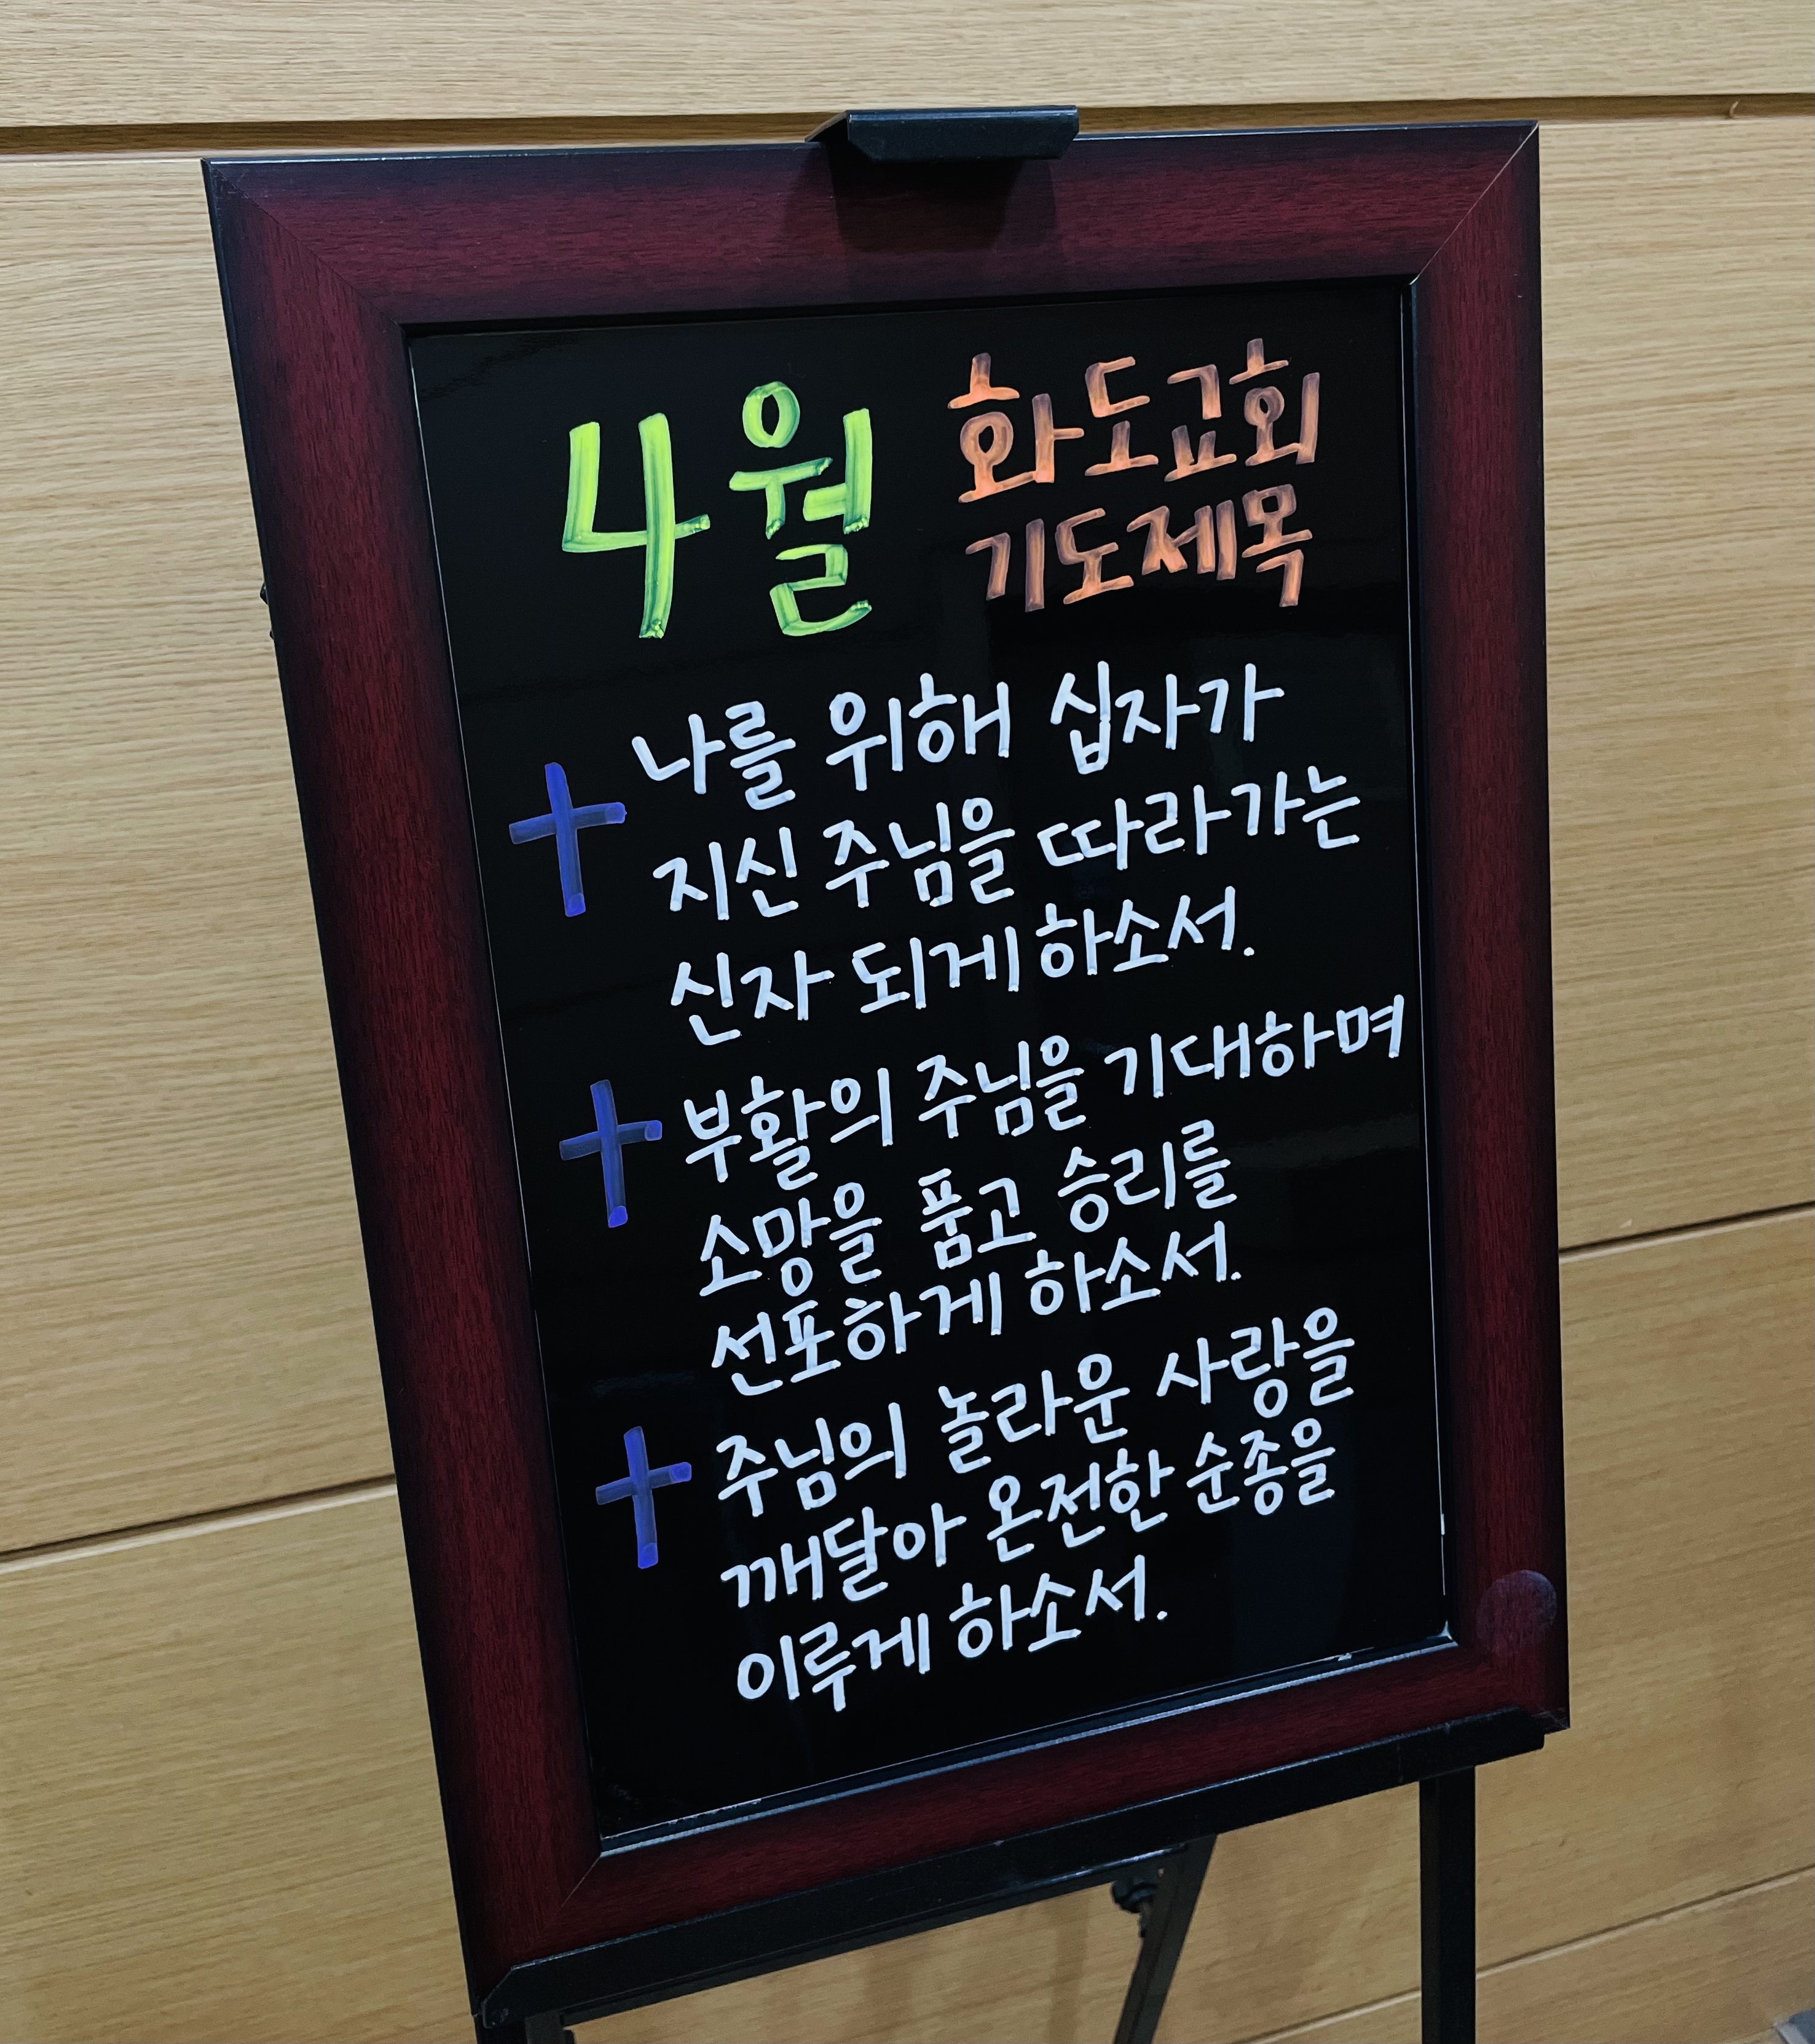 4월 화도교회
기도제목
나를 위해 십자가
지신 주님을 따라가는
신자 되게 하소서.
부활의 주님을 기대하며
소망을 품고 승리를
선포하게 하소서.
주님의 놀라운 사랑을
깨달아 온전한 순종을
이루게 하소서.